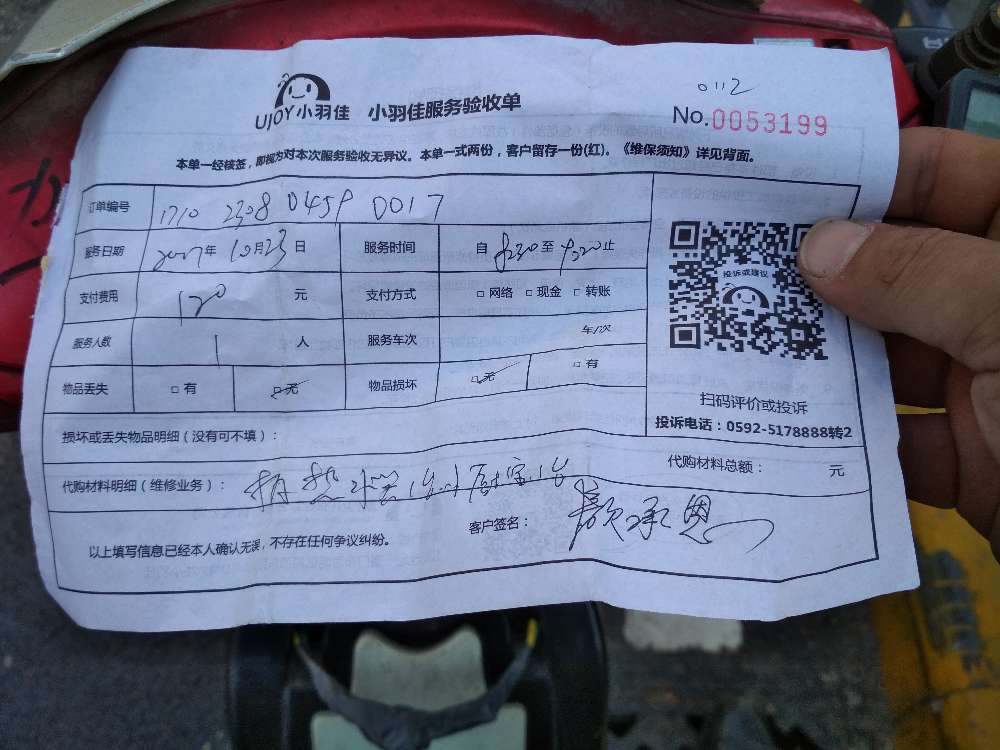 0112
UJOY小羽佳 小羽佳服务验收单
No.0053199
本单一经核签，即视为对本次服务验收无异议。本单一式两份，客户留存一份(红)。《维保须知》详见背面。
订单编号 1710 2308 0459 0017
服务日期 年 10月23日 服务时间 自 至 止
支付费用 120 元 支付方式 □ 网络 □ 现金 □ 转账
服务人数 1 人 服务车次 年/次
物品丢失 □ 有 □ 无 物品损坏 □ 无 □ 有
投诉或建议
扫码评价或投诉
投诉电话：0592-5178888转2
损坏或丢失物品明细（没有可不填）：
代购材料明细（维修业务）： 热水器 代购材料总额： 元
以上填写信息已经本人确认无误，不存在任何争议纠纷。 客户签名： 颜承恩